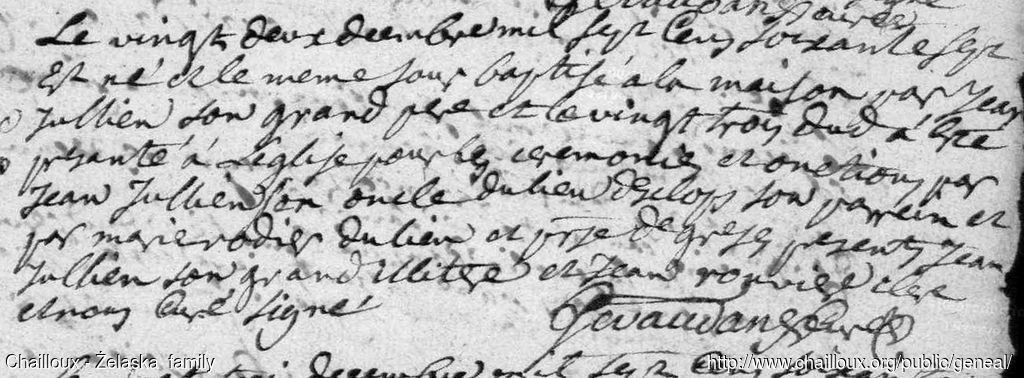 Le vingt deux decembre mil sept cens soixante sept
Est né et le meme jour baptisé a la maison par Jean
Jullien son grand pere et le vingt trois dud a ete
presanté a Leglise pour les ceremonies et onctions par
Jean Jullien son oncle du lieu desclops son parrein et
par marie rodier du lieu et prse de greses presents Jean
Jullien son grand illitere et Jean rouviere clerc
et nous curé signé
Gevaudan Curé
Chailloux - Żelaska family
http://www.chailloux.org/public/geneal/